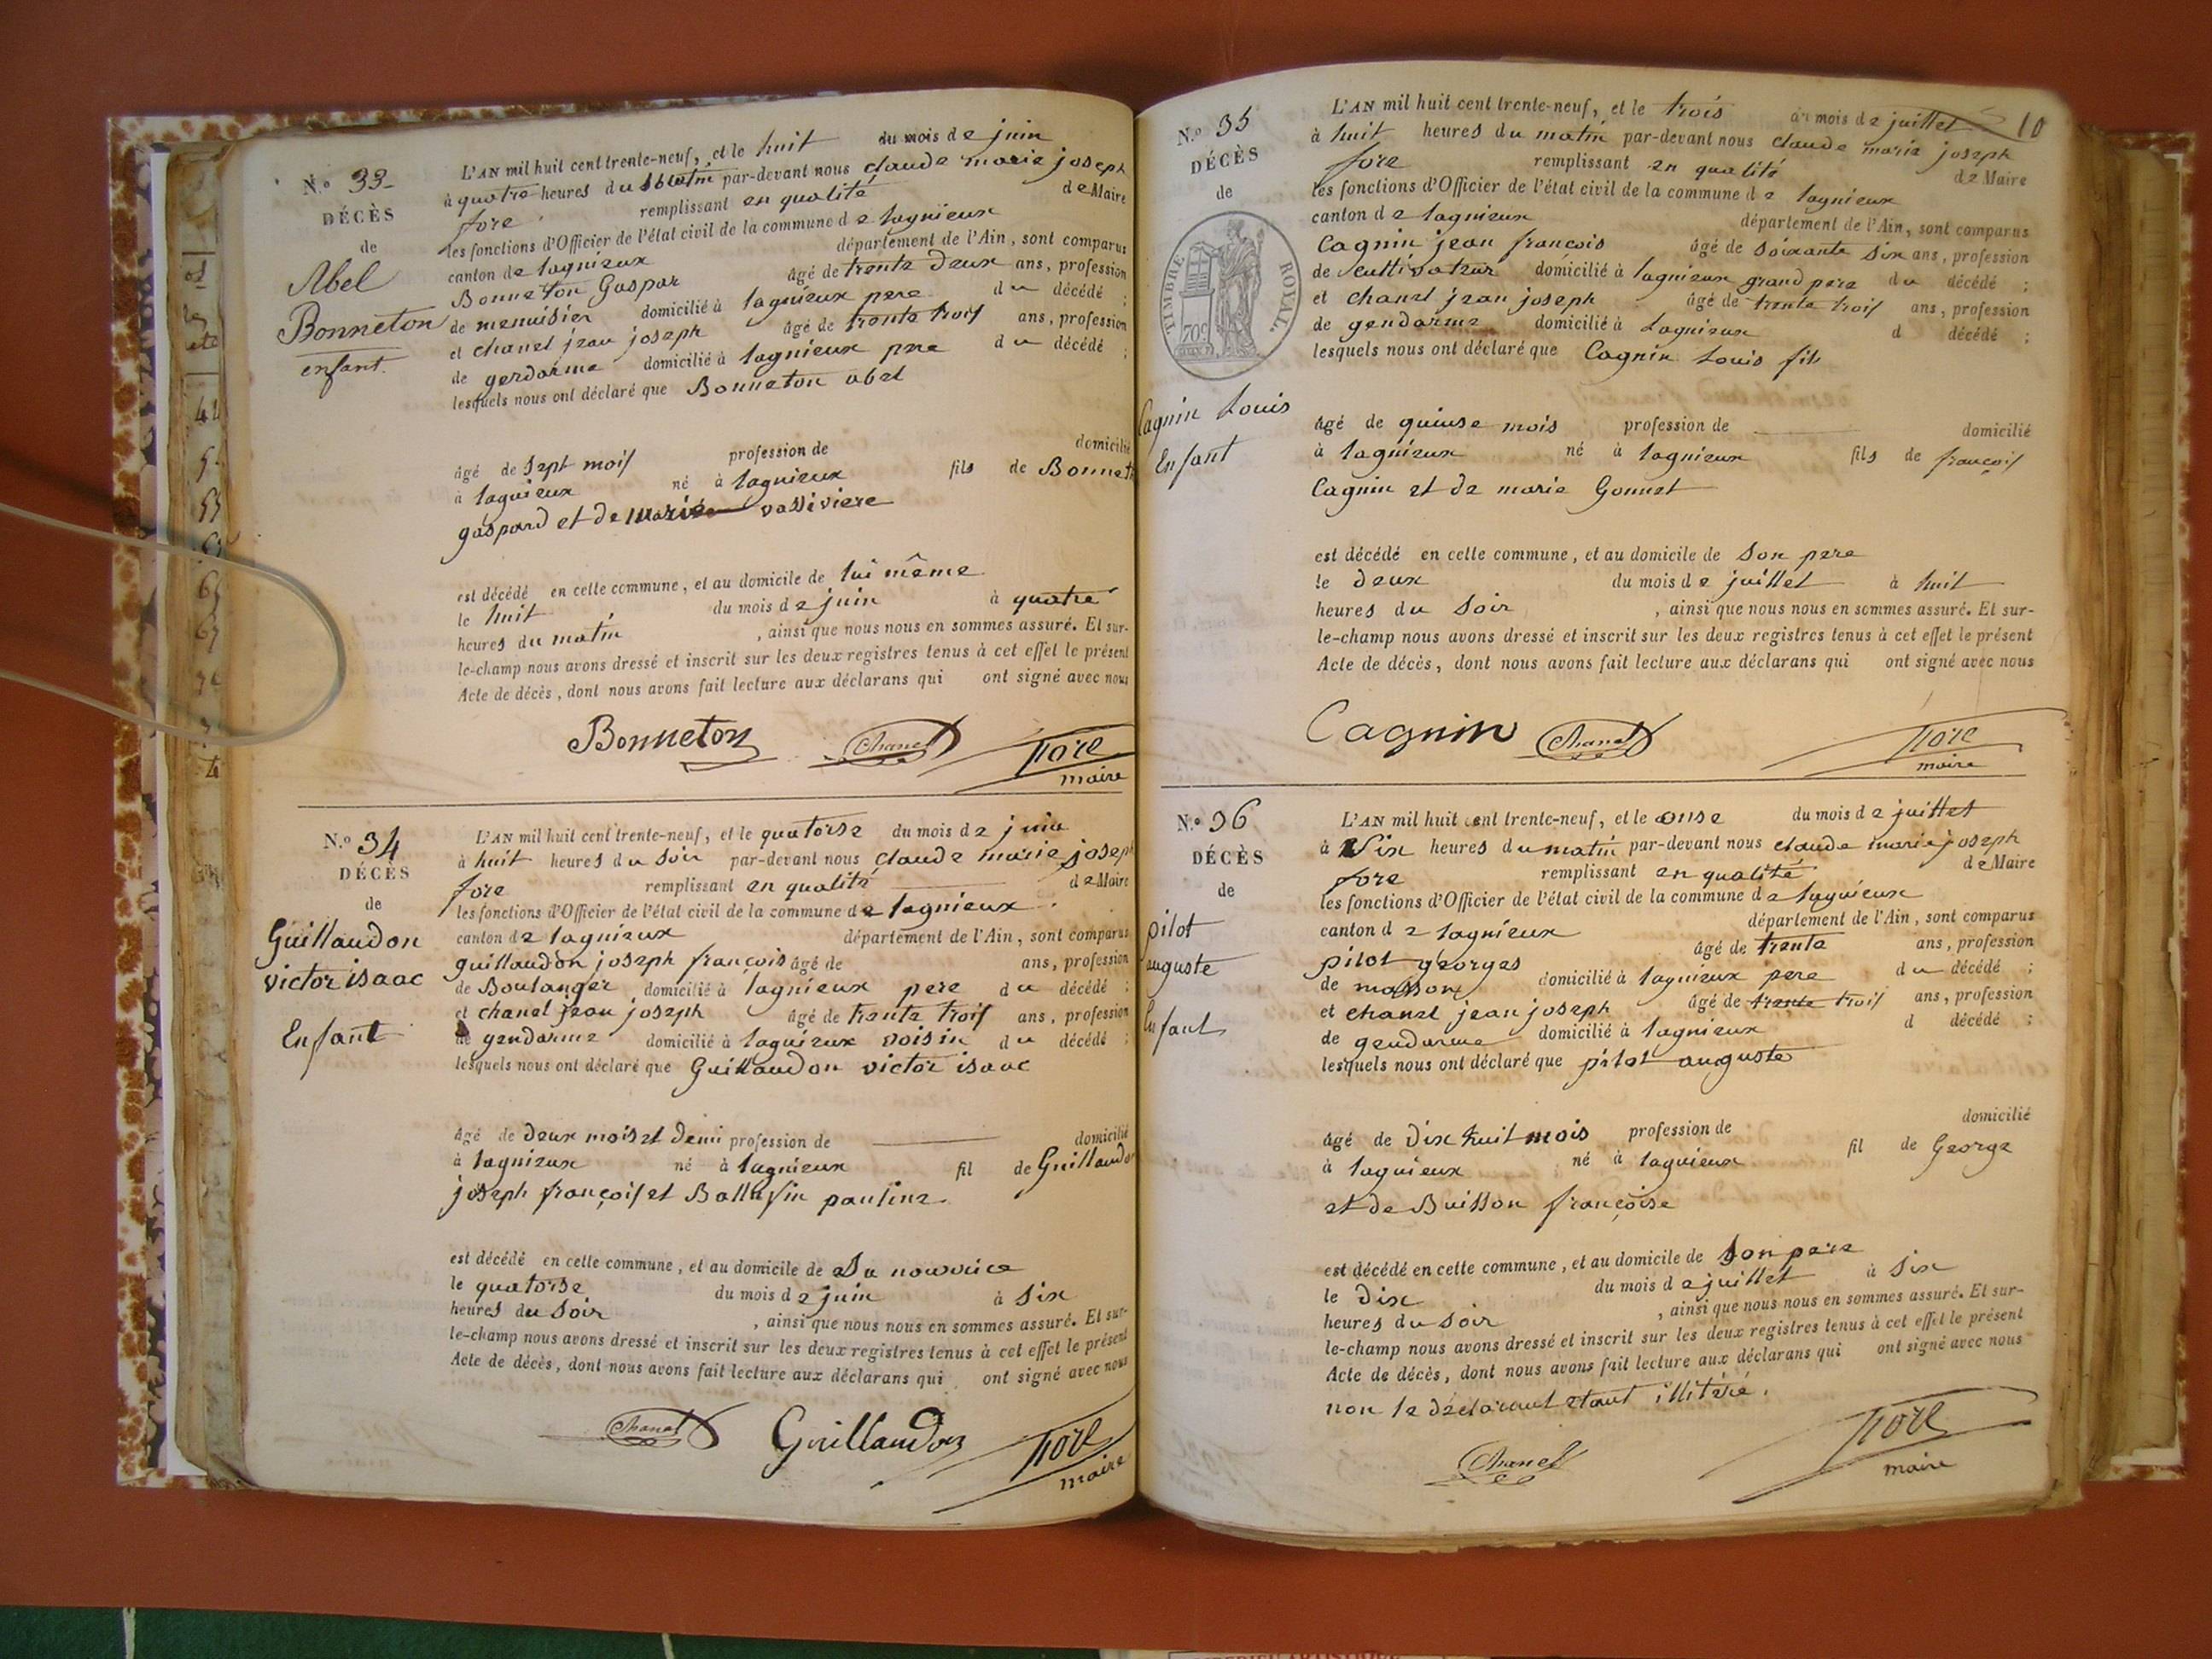 N.o 33
DÉCÈS
de
Abel
Bonneton
enfant.
L'AN mil huit cent trente-neuf, et le huit du mois de juin
à quatre heures du matin par-devant nous claude marie joseph
fore remplissant en qualité de Maire
les fonctions d'Officier de l'état civil de la commune de lagnieux
canton de lagnieux département de l'Ain, sont comparus
Bonneton Gaspar âgé de trente deux ans, profession
de menuisier domicilié à lagnieux pere du décédé ;
et chanel jean joseph âgé de trente trois ans, profession
de gendarme domicilié à lagnieux du décédé ;
lesquels nous ont déclaré que Bonneton abel
âgé de sept mois profession de domicilié
à lagnieux né à lagnieux fils de Bonneton
gaspard et de marie vassiviere
est décédé en cette commune, et au domicile de lui même
le huit du mois de juin à quatre
heures du matin , ainsi que nous nous en sommes assuré. Et sur-
le-champ nous avons dressé et inscrit sur les deux registres tenus à cet effet le présent
Acte de décès, dont nous avons fait lecture aux déclarans qui ont signé avec nous
Bonneton Chanel fore
maire
N.o 34
DÉCÈS
de
Guillaudon
victor isaac
Enfant
L'AN mil huit cent trente-neuf, et le quatorse du mois de juin
à huit heures du soir par-devant nous claude marie joseph
fore remplissant en qualité de Maire
les fonctions d'Officier de l'état civil de la commune de lagnieux
canton de lagnieux département de l'Ain, sont comparus
guillaudon joseph françois âgé de ans, profession
de Boulanger domicilié à lagnieux pere du décédé ;
et chanel jean joseph âgé de trente trois ans, profession
de gendarme domicilié à lagnieux voisin du décédé ;
lesquels nous ont déclaré que Guillaudon victor isaac
âgé de deux mois et demi profession de domicilié
à lagnieux né à lagnieux fil de Guillaudon
joseph françois et pauline
est décédé en cette commune, et au domicile de sa nourrice
le quatorse du mois de juin à six
heures du soir , ainsi que nous nous en sommes assuré. Et sur-
le-champ nous avons dressé et inscrit sur les deux registres tenus à cet effet le présent
Acte de décès, dont nous avons fait lecture aux déclarans qui ont signé avec nous
Chanel Guillaudon fore
maire
10
N.o 35
DÉCÈS
de
TIMBRE ROYAL.
70c
Cagnin Louis
Enfant
L'AN mil huit cent trente-neuf, et le trois du mois de juillet
à huit heures du matin par-devant nous claude marie joseph
fore remplissant en qualité de Maire
les fonctions d'Officier de l'état civil de la commune de lagnieux
canton de lagnieux département de l'Ain, sont comparus
Cagnin jean françois âgé de soixante six ans, profession
de cultivateur domicilié à lagnieux grand pere du décédé ;
et chanel jean joseph âgé de trente trois ans, profession
de gendarme domicilié à Lagnieux d décédé ;
lesquels nous ont déclaré que Cagnin Louis fils
âgé de quinse mois profession de domicilié
à lagnieux né à lagnieux fils de françois
Cagnin et de marie Gonnet
est décédé en cette commune, et au domicile de son pere
le deux du mois de juillet à huit
heures du soir , ainsi que nous nous en sommes assuré. Et sur-
le-champ nous avons dressé et inscrit sur les deux registres tenus à cet effet le présent
Acte de décès, dont nous avons fait lecture aux déclarans qui ont signé avec nous
Cagnin Chanel fore
maire
N.o 36
DÉCÈS
de
pilot
auguste
Enfant
L'AN mil huit cent trente-neuf, et le onse du mois de juillet
à six heures du matin par-devant nous claude marie joseph
fore remplissant en qualité de Maire
les fonctions d'Officier de l'état civil de la commune de lagnieux
canton de lagnieux département de l'Ain, sont comparus
pilot georges âgé de trente ans, profession
de masson domicilié à lagnieux pere du décédé ;
et chanel jean joseph âgé de trente trois ans, profession
de gendarme domicilié à lagnieux d décédé ;
lesquels nous ont déclaré que pilot auguste
âgé de dix huit mois profession de domicilié
à lagnieux né à lagnieux fil de George
et de Buisson françoise
est décédé en cette commune, et au domicile de son pere
le dix du mois de juillet à six
heures du soir , ainsi que nous nous en sommes assuré. Et sur-
le-champ nous avons dressé et inscrit sur les deux registres tenus à cet effet le présent
Acte de décès, dont nous avons fait lecture aux déclarans qui ont signé avec nous
non le déclarant étant illitéré.
Chanel fore
maire